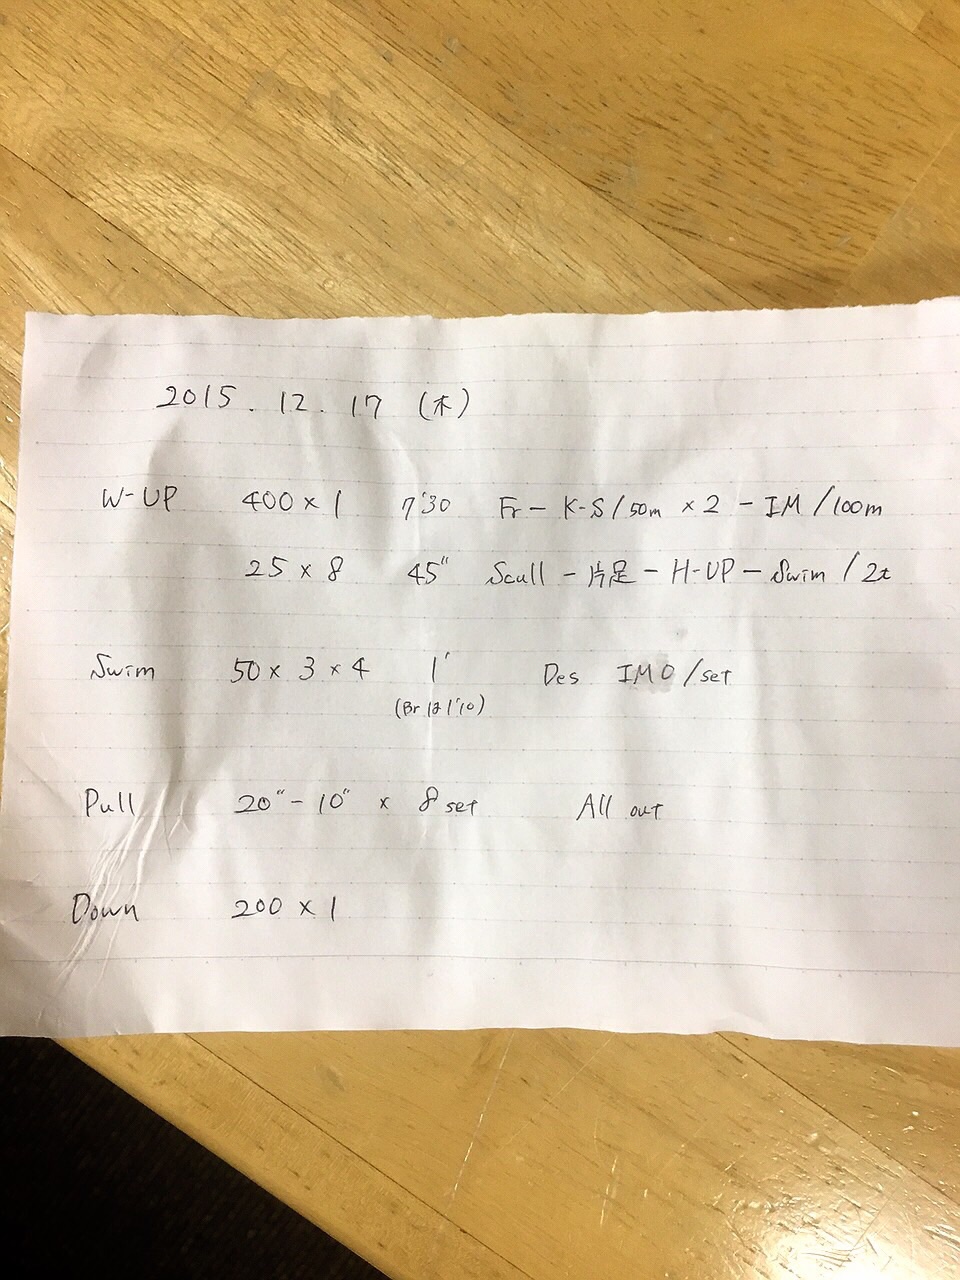 2015. 12. 17 (木)
W-UP 400 × 1 7'30 Fr - K-S/50m × 2 - IM/100m
25 × 8 45" Scull - 片足 - H-UP - Swim / 2t
Swim 50 × 3 × 4 1' Des IMO/set
(Br は 1'10)
Pull 20" - 10" × 8 set All out
Down 200 × 1